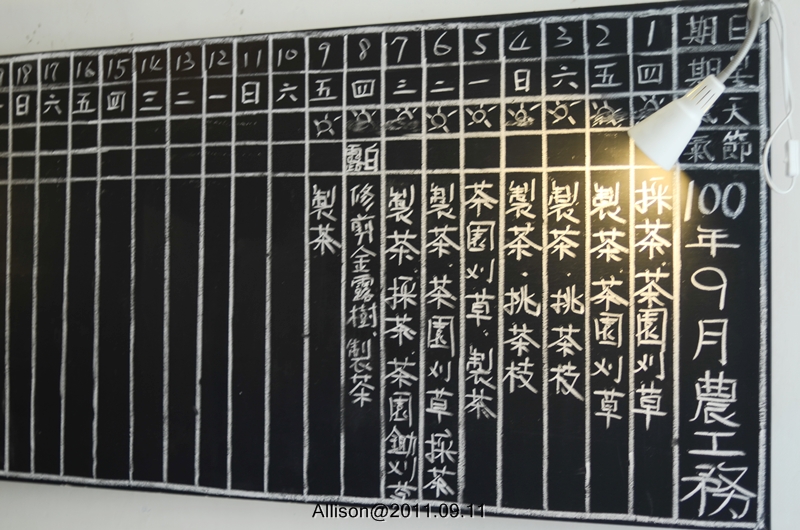 日期
星期
天氣
節氣
100年9月農工務
1
四
採茶.茶園刈草
2
五
製茶.茶園刈草
3
六
製茶.挑茶枝
4
日
製茶.挑茶枝
5
一
茶園刈草.製茶
6
二
製茶.茶園刈草.採茶
7
三
製茶.採茶.茶園鋤刈草
8
四
白露
修剪金露樹.製茶
9
五
製茶
10
六
11
日
12
一
13
二
14
三
15
四
16
五
17
六
18
日
Allison@2011.09.11